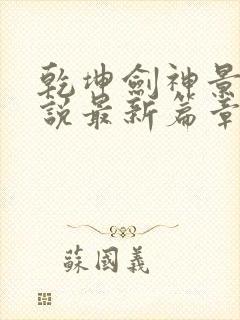 乾坤劍神景
說最新篇章
蘇國義